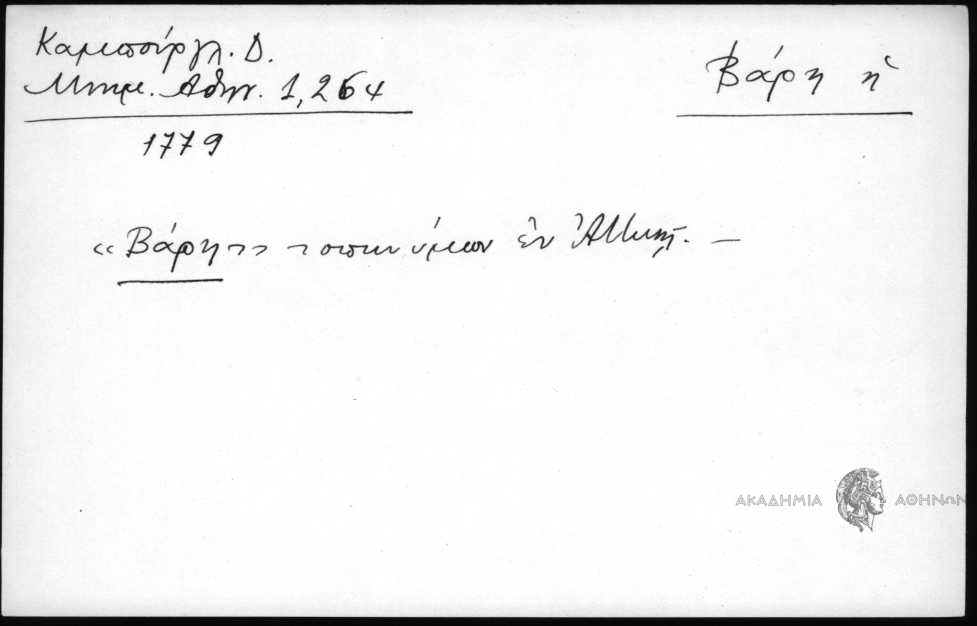 Καμπούργλ. Δ.
Μνημ. Αθην. 1,264
Βάρη ἡ
1779
«Βάρη» τοπωνύμιον ἐν Ἀττικῇ. —
ΑΚΑΔΗΜΙΑ ΑΘΗΝΩΝ